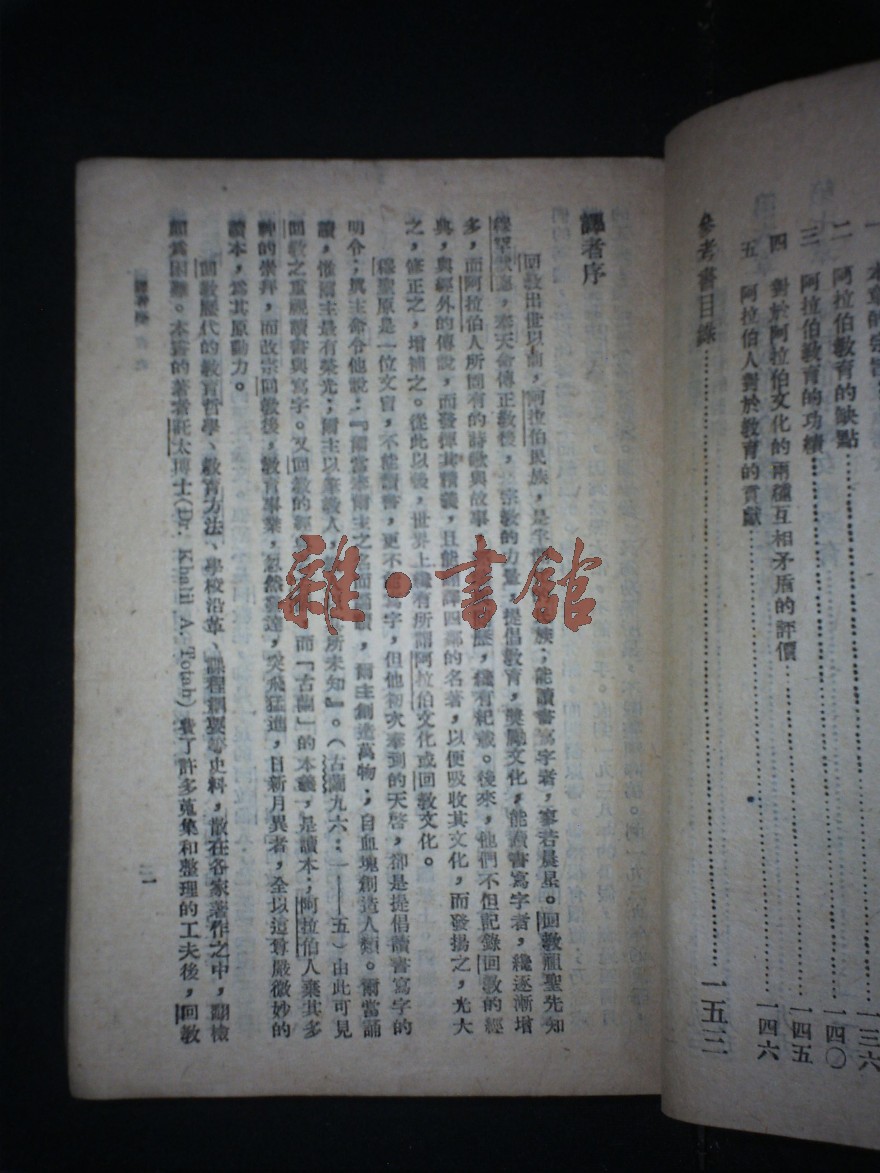 二 阿拉伯教育的缺點
三 阿拉伯教育的功績……一三六
四 對於阿拉伯文化的兩種互相矛盾的評價……一四〇
五 阿拉伯人對於教育的貢獻……一四五
一四六
參考書目錄……一五三
譯者序
回教出世以前,阿拉伯民族,是半 族;能讀書寫字者,寥若晨星。回教祖聖先知
穆罕默德,奉天命傳正教後, 宗教的力量,提倡教育,獎勵文化,能讀書寫字者,纔逐漸增
多,而阿拉伯人所固有的詩歌與故事 歷,纔有紀載。後來,他們不但記錄回教的經
典,與經外的傳說,而發揮其精義,且能翻譯四鄰的名著,以便吸收其文化,而發揚之,光大
之,修正之,增補之。從此以後,世界上纔有所謂阿拉伯文化或回教文化。
穆聖原是一位文盲,不能讀書,更不 寫字,但他初次奉到的天啓,卻是提倡讀書寫字的
明令;眞主命令他說:『爾當奉爾主之名而 讀,爾主創造萬物;自血塊創造人類。爾當誦
讀,惟爾主最有榮光;爾主以筆教人, 所未知』。(古蘭九六:一——五)由此可見
回教之重視讀書與寫字。又回教的經典 而「古蘭」的本義,是讀本;阿拉伯人棄其多
神的崇拜,而改宗回教後,教育事業,忽然 達,突飛猛進,日新月異者,全以這尊嚴微妙的
讀本,爲其原動力。
回教歷代的教育哲學、教育方法、學校沿革、課程綱要等史料,散在各家著作之中,翻檢
頗爲困難。本書的著者託太博士(Dr. Khalil A. Totah)費了許多蒐集和整理的工夫後,回教
譯者序
一
雜·書館